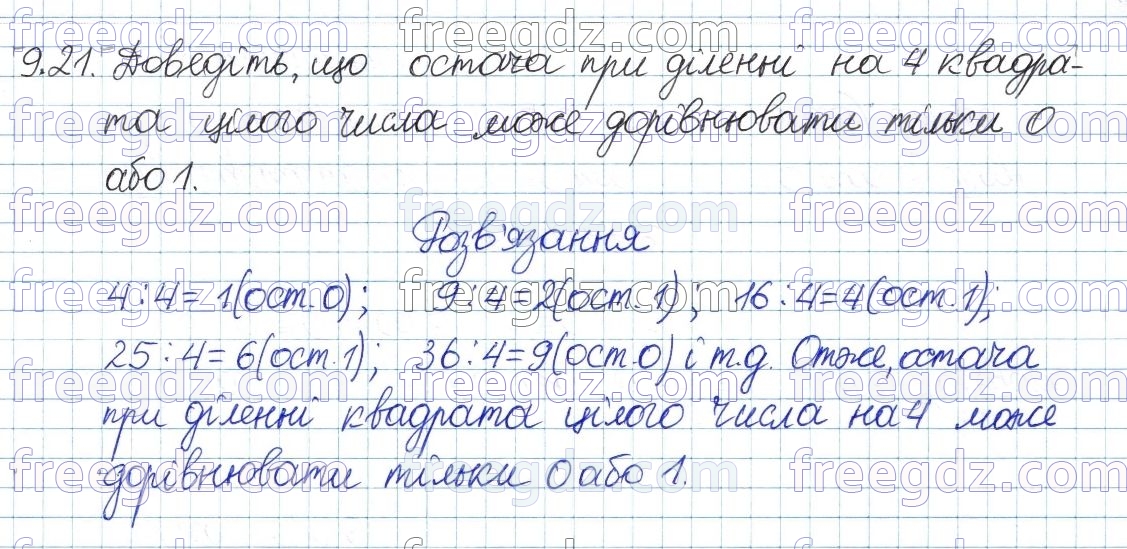 9.21. Доведіть, що остача при діленні на 4 квадра-
та цілого числа може дорівнювати тільки 0
або 1.
Розв'язання
4 : 4 = 1 (ост. 0); 9 : 4 = 2 (ост. 1); 16 : 4 = 4 (ост. 1);
25 : 4 = 6 (ост. 1); 36 : 4 = 9 (ост. 0) і т.д. Отже, остача
при діленні квадрата цілого числа на 4 може
дорівнювати тільки 0 або 1.
freegdz.com